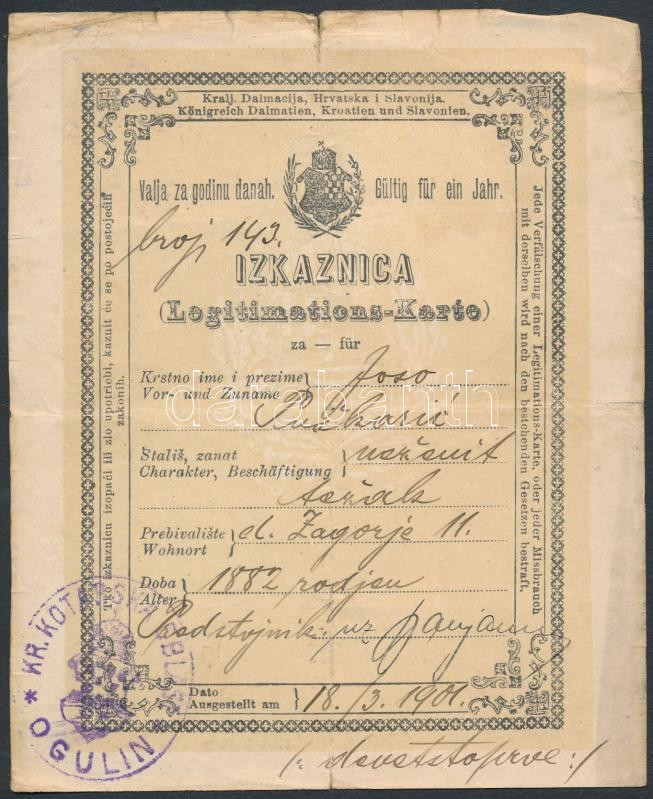 Kralj. Dalmacija, Hrvatska i Slavonija.
Königreich Dalmatien, Kroatien und Slavonien.
Valja za godinu danah. Gültig für ein Jahr.
broj 143.
IZKAZNICA
(Legitimations-Karte)
za — für
Krstno ime i prezime
Vor- und Zuname
Joso
Stališ, zanat
Charakter, Beschäftigung
težak
Prebivalište
Wohnort
d. Zagorje 11.
Doba
Alter
1882 rodjen
Predstojnik:
Dato
Ausgestellt am
18./3. 1901.
Tko izkaznicu izopači ili zlo upotriebi, kaznit će se po postojećih
zakonih.
Jede Verfälschung einer Legitimations-Karte, oder jeder Missbrauch
mit derselben wird nach den bestehenden Gesetzen bestraft.
* KR. KOT OBLAST
OGULIN *
darabanth